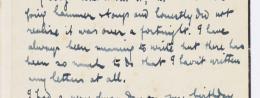 hammer & tongs and honestly did not
realise it was over a fortnight. I have
always been meaning to write but there has
been so much to do that I havn't written
any letters at all.
I had a very
birthday